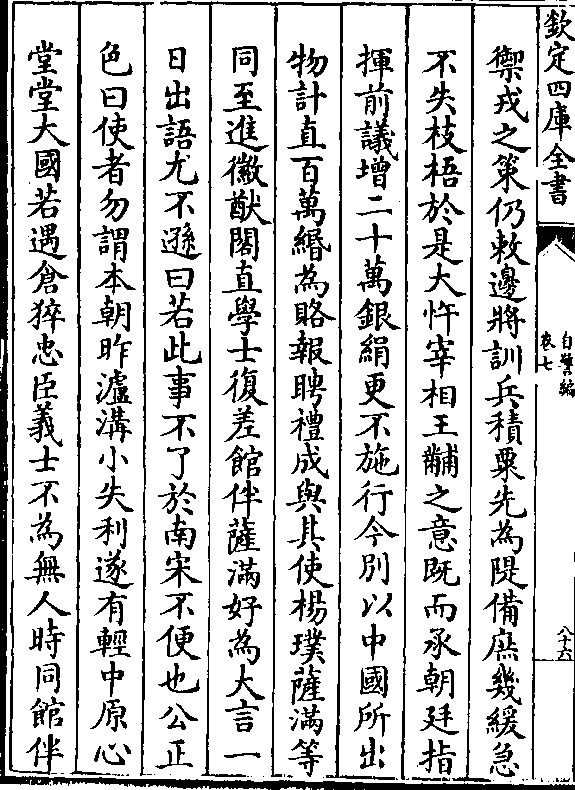 欽定四庫全書
自警編
卷七
八十六
禦戎之策仍敕邊將訓兵積粟先為隄備庶幾緩急
不失枝梧於是大忤宰相王黼之意既而承朝廷指
揮前議增二十萬銀絹更不施行今別以中國所出
物計直百萬緡為賂報聘禮成與其使楊璞薩滿等
同至進徽猷閣直學士復差館伴薩滿好為大言一
日出語尤不遜曰若此事不了於南宋不便也公正
色曰使者勿謂本朝昨瀘溝小失利遂有輕中原心
堂堂大國若遇倉猝忠臣義士不為無人時同館伴